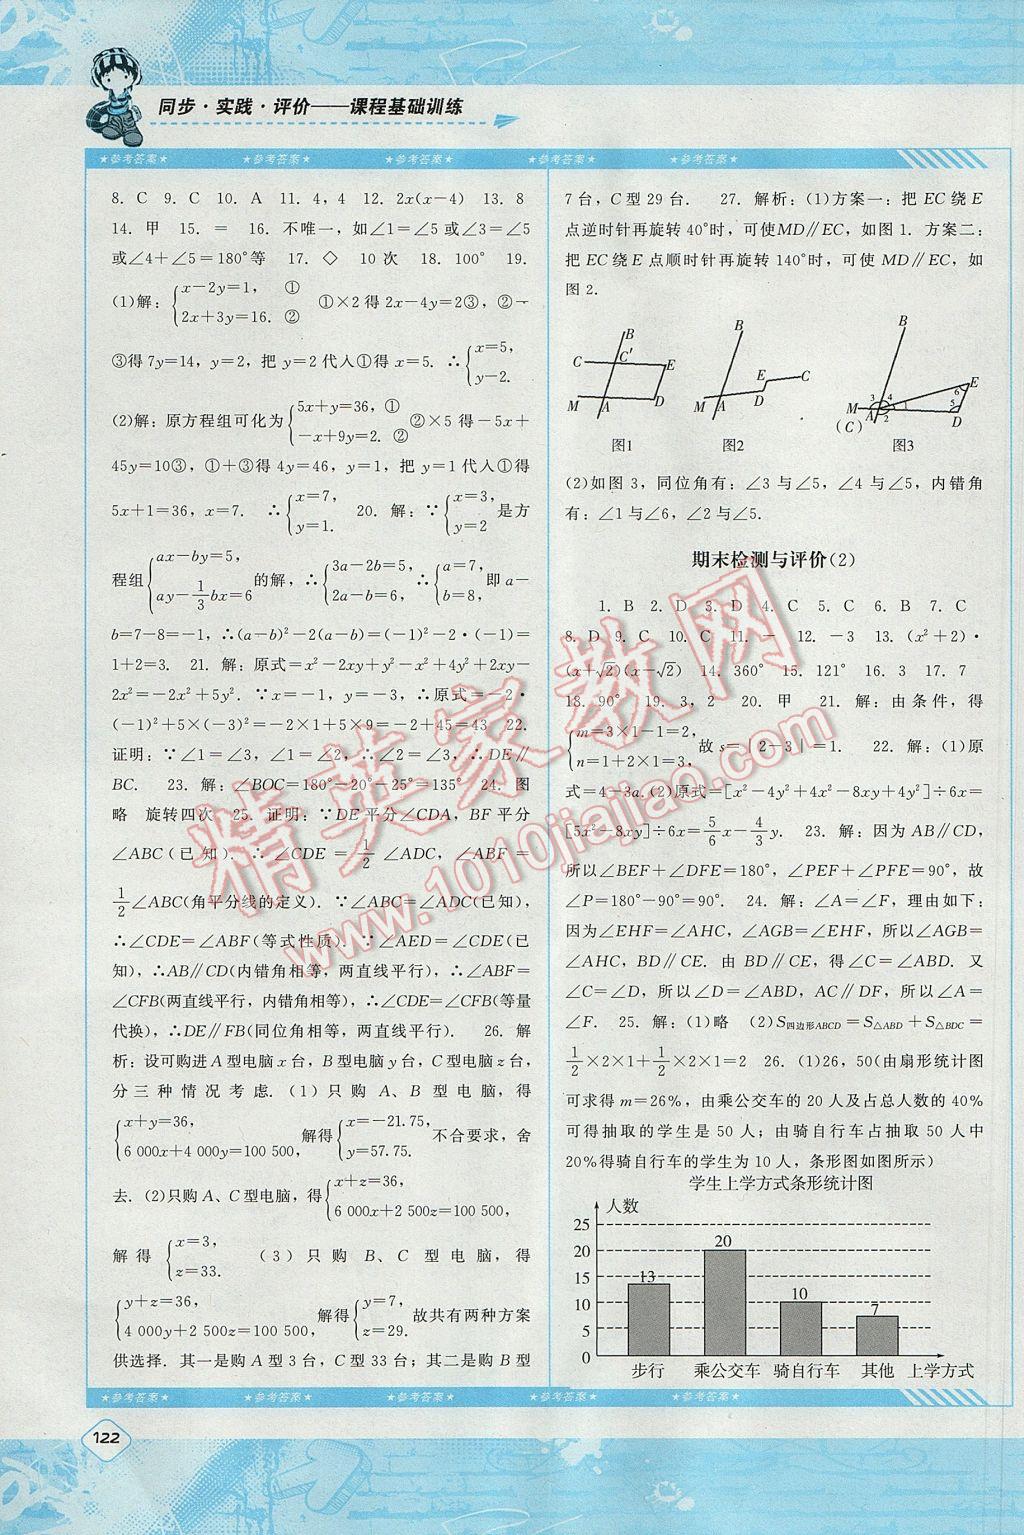 同步·实践·评价——课程基础训练
★参考答案★ ★参考答案★ ★参考答案★ ★参考答案★ ★参考答案★
8. C 9. C 10. A 11. 4, 4 12. 2x(x-4) 13. 8
14. 甲 15. = 16. 不唯一，如∠1=∠5或∠3=∠5
或∠4+∠5=180°等 17. ◇ 10次 18. 100° 19.
(1)解：{x-2y=1, ① 2x+3y=16. ② ①×2得2x-4y=2③, ②-
③得7y=14, y=2, 把y=2代入①得x=5. ∴{x=5, y-2.
(2)解：原方程组可化为{5x+y=36, ① -x+9y=2. ② ②×5得-5x+
45y=10③, ①+③得4y=46, y=1, 把y=1代入①得
5x+1=36, x=7. ∴{x=7, y=1. 20. 解：∵{x=3, y=2 是方
程组{ax-by=5, ay-1/3bx=6 的解，∴{3a-2b=5, 2a-b=6, ∴{a=7, b=8, 即a-
b=7-8=-1, ∴(a-b)²-2(a-b)=(-1)²-2·(-1)=
1+2=3. 21. 解：原式=x²-2xy+y²-x²+4y²+2xy-
2x²=-2x²+5y². ∵x=-1, y=-3, ∴原式=-2·
(-1)²+5×(-3)²=-2×1+5×9=-2+45=43 22.
证明：∵∠1=∠3, ∠1=∠2, ∴∠2=∠3, ∴DE∥
BC. 23. 解：∠BOC=180°-20°-25°=135° 24. 图
略 旋转四次 25. 证明：∵DE平分∠CDA, BF平分
∠ABC(已知). ∴∠CDE=1/2∠ADC, ∠ABF=
1/2∠ABC(角平分线的定义). ∵∠ABC=∠ADC(已知),
∴∠CDE=∠ABF(等式性质). ∵∠AED=∠CDE(已
知), ∴AB∥CD(内错角相等，两直线平行), ∴∠ABF=
∠CFB(两直线平行，内错角相等), ∴∠CDE=∠CFB(等量
代换), ∴DE∥FB(同位角相等，两直线平行). 26. 解
析：设可购进A型电脑x台，B型电脑y台，C型电脑z台，
分三种情况考虑. (1)只购A、B型电脑，得
{x+y=36, 6 000x+4 000y=100 500, 解得{x=-21.75, y=57.75. 不合要求，舍
去. (2)只购A、C型电脑，得{x+z=36, 6 000x+2 500z=100 500,
解得{x=3, z=33. (3)只购B、C型电脑，得
{y+z=36, 4 000y+2 500z=100 500, 解得{y=7, z=29. 故共有两种方案
供选择. 其一是购A型3台，C型33台；其二是购B型
7台，C型29台. 27. 解析：(1)方案一：把EC绕E
点逆时针再旋转40°时，可使MD∥EC, 如图1. 方案二：
把EC绕E点顺时针再旋转140°时，可使MD∥EC, 如
图2.
B C C′ E M A D
图1
B E C M A D
图2
B E M A D (C) 3 4 6 1 5 2
图3
(2)如图3，同位角有：∠3与∠5, ∠4与∠5, 内错角
有：∠1与∠6, ∠2与∠5.
期末检测与评价(2)
1. B 2. D 3. D 4. C 5. C 6. B 7. C
8. D 9. C 10. C 11. - 12. -3 13. (x²+2)·
(x+√2)(x-√2) 14. 360° 15. 121° 16. 3 17. 7
18. 90° 19. 3, 2 20. 甲 21. 解：由条件，得
{m=3×1-1=2, n=1+2×1=3, 故s=|2-3|=1. 22. 解：(1)原
式=4-3a. (2)原式=[x²-4y²+4x²-8xy+4y²]÷6x=
[5x²-8xy]÷6x=5/6x-4/3y. 23. 解：因为AB∥CD,
所以∠BEF+∠DFE=180°, ∠PEF+∠PFE=90°, 故
∠P=180°-90°=90°. 24. 解：∠A=∠F, 理由如下：
因为∠EHF=∠AHC, ∠AGB=∠EHF, 所以∠AGB=
∠AHC, BD∥CE. 由BD∥CE, 得∠C=∠ABD. 又
∠C=∠D, 所以∠D=∠ABD, AC∥DF, 所以∠A=
∠F. 25. 解：(1)略 (2)S四边形ABCD=S△ABD+S△BDC=
1/2×2×1+1/2×2×1=2 26. (1)26, 50(由扇形统计图
可求得m=26%, 由乘公交车的20人及占总人数的40%
可得抽取的学生是50人；由骑自行车占抽取50人中
20%得骑自行车的学生为10人，条形图如图所示)
学生上学方式条形统计图
人数
25
20
15
10
5
0
13 20 10 7
步行 乘公交车 骑自行车 其他 上学方式
★参考答案★ ★参考答案★ ★参考答案★ ★参考答案★ ★参考答案★
122
精英家教网
www.1010jiajiao.com